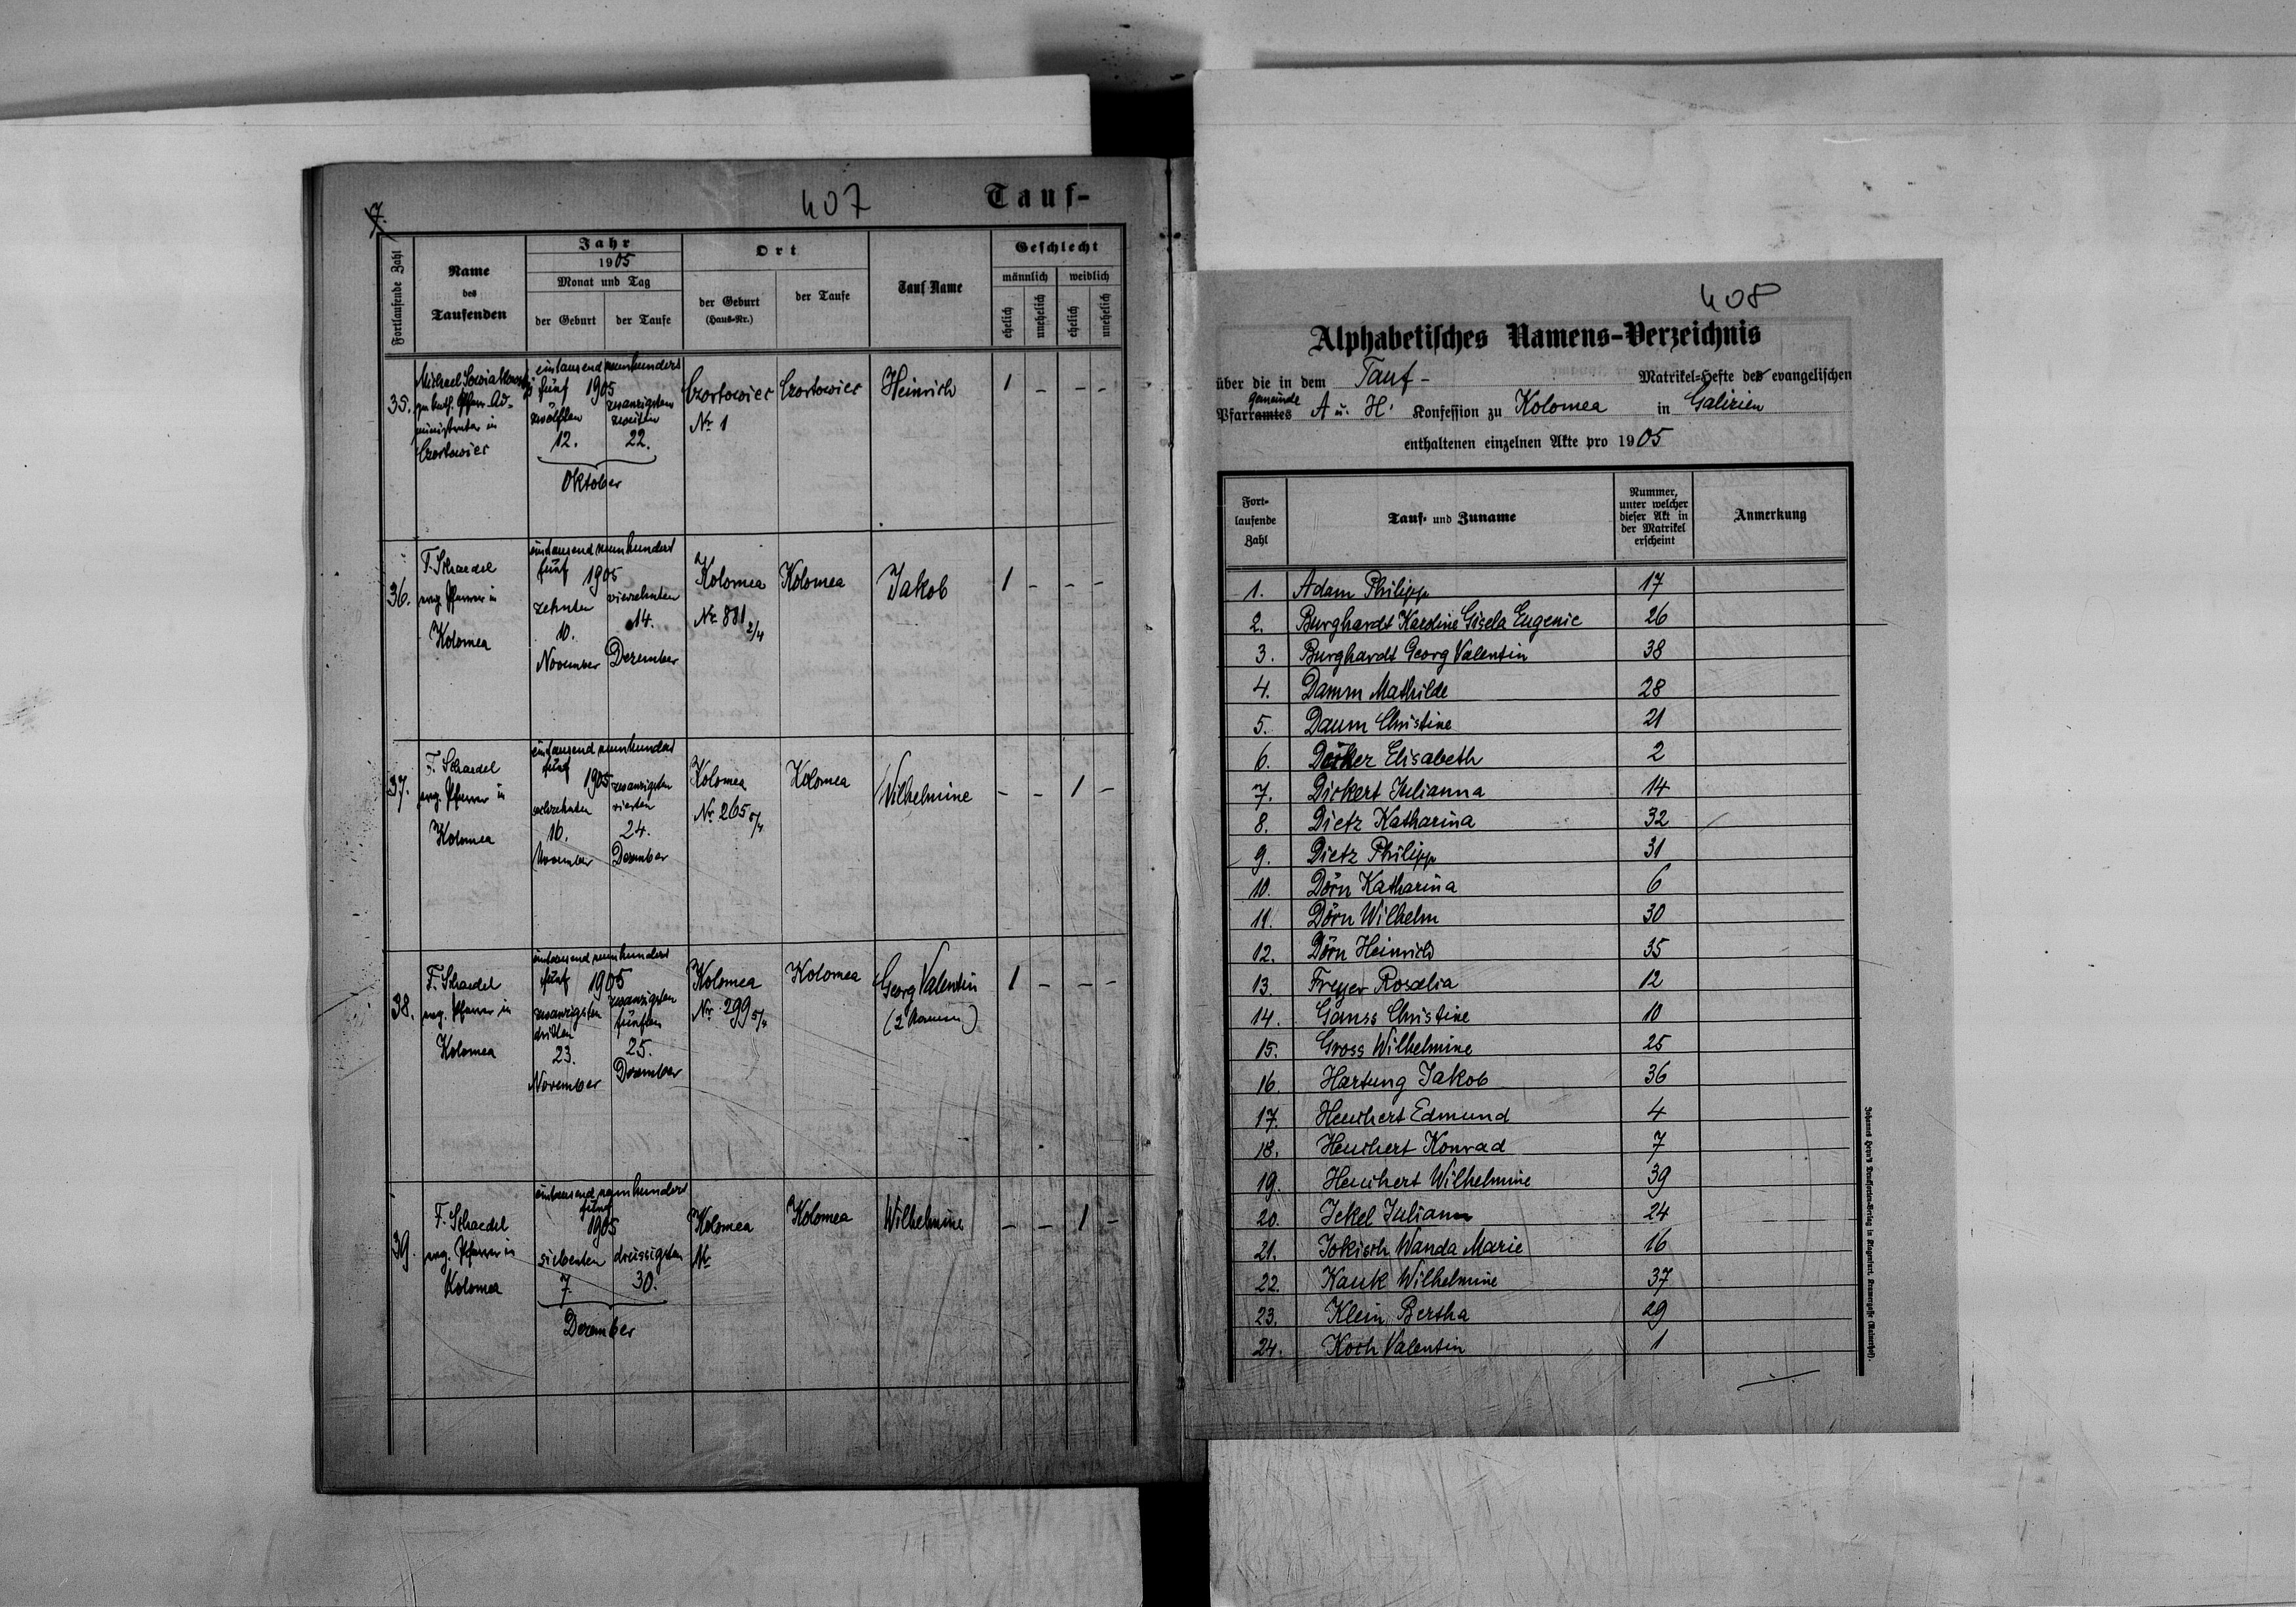 7.
407
Tauf-
Fortlaufende Zahl
Name
des
Taufenden
Jahr
1905
Monat und Tag
der Geburt
der Taufe
Ort
der Geburt
(Haus-Nr.)
der Taufe
Tauf-Name
Geschlecht
männlich
weiblich
ehelich
unehelich
ehelich
unehelich
35.
Michael
Czortowiec
eintausend neunhundert
fünf 1905
zwölften
12.
zwanzigsten
zweiten
22.
Oktober
Czortowiec
Nr. 1
Czortowiec
Heinrich
1 - - -
36.
F. Schaedel
evg. Pfarrer in
Kolomea
eintausend neunhundert
fünf 1905
zehnten
10.
November
vierzehnten
14.
Dezember
Kolomea
Nr. 881 2/4
Kolomea
Jakob
1 - - -
37.
F. Schaedel
evg. Pfarrer in
Kolomea
eintausend neunhundert
fünf
1905
sechzehnten
16.
November
zwanzigsten
vierten
24.
Dezember
Kolomea
Nr. 265 5/4
Kolomea
Wilhelmine
- - 1 -
38.
F. Schaedel
evg. Pfarrer in
Kolomea
eintausend neunhundert
fünf 1905
zwanzigsten
dritten
23.
November
zwanzigsten
fünften
25.
Dezember
Kolomea
Nr. 299 5/4
Kolomea
Georg Valentin
(2 Namen)
1 - - -
39.
F. Schaedel
evg. Pfarrer in
Kolomea
eintausend neunhundert
fünf
1905
siebenten
7.
dreissigsten
30.
Dezember
Kolomea
Nr.
Kolomea
Wilhelmine
- - 1 -
408
Alphabetisches Namens-Verzeichnis
über die in dem Tauf- Matrikel-Hefte der evangelischen
gemeinde
Pfarramtes A u. H. Konfession zu Kolomea in Galizien
enthaltenen einzelnen Akte pro 1905
Fort-
laufende
Zahl
Tauf- und Zuname
Nummer,
unter welcher
dieser Akt in
der Matrikel
erscheint
Anmerkung
1. Adam Philipp 17
2. Burghardt Karoline Gisela Eugenie 26
3. Burghardt Georg Valentin 38
4. Damm Mathilde 28
5. Daum Christine 21
6. Decker Elisabeth 2
7. Dickert Julianna 14
8. Dietz Katharina 32
9. Dietz Philipp 31
10. Dörn Katharina 6
11. Dörn Wilhelm 30
12. Dörn Heinrich 35
13. Freyer Rosalia 12
14. Ganss Christine 10
15. Gross Wilhelmine 25
16. Hartung Jakob 36
17. Heuchert Edmund 4
18. Heuchert Konrad 7
19. Heuchert Wilhelmine 39
20. Jekel Juliana 24
21. Jokisch Wanda Marie 16
22. Kauk Wilhelmine 37
23. Klein Bertha 29
24. Koch Valentin 1